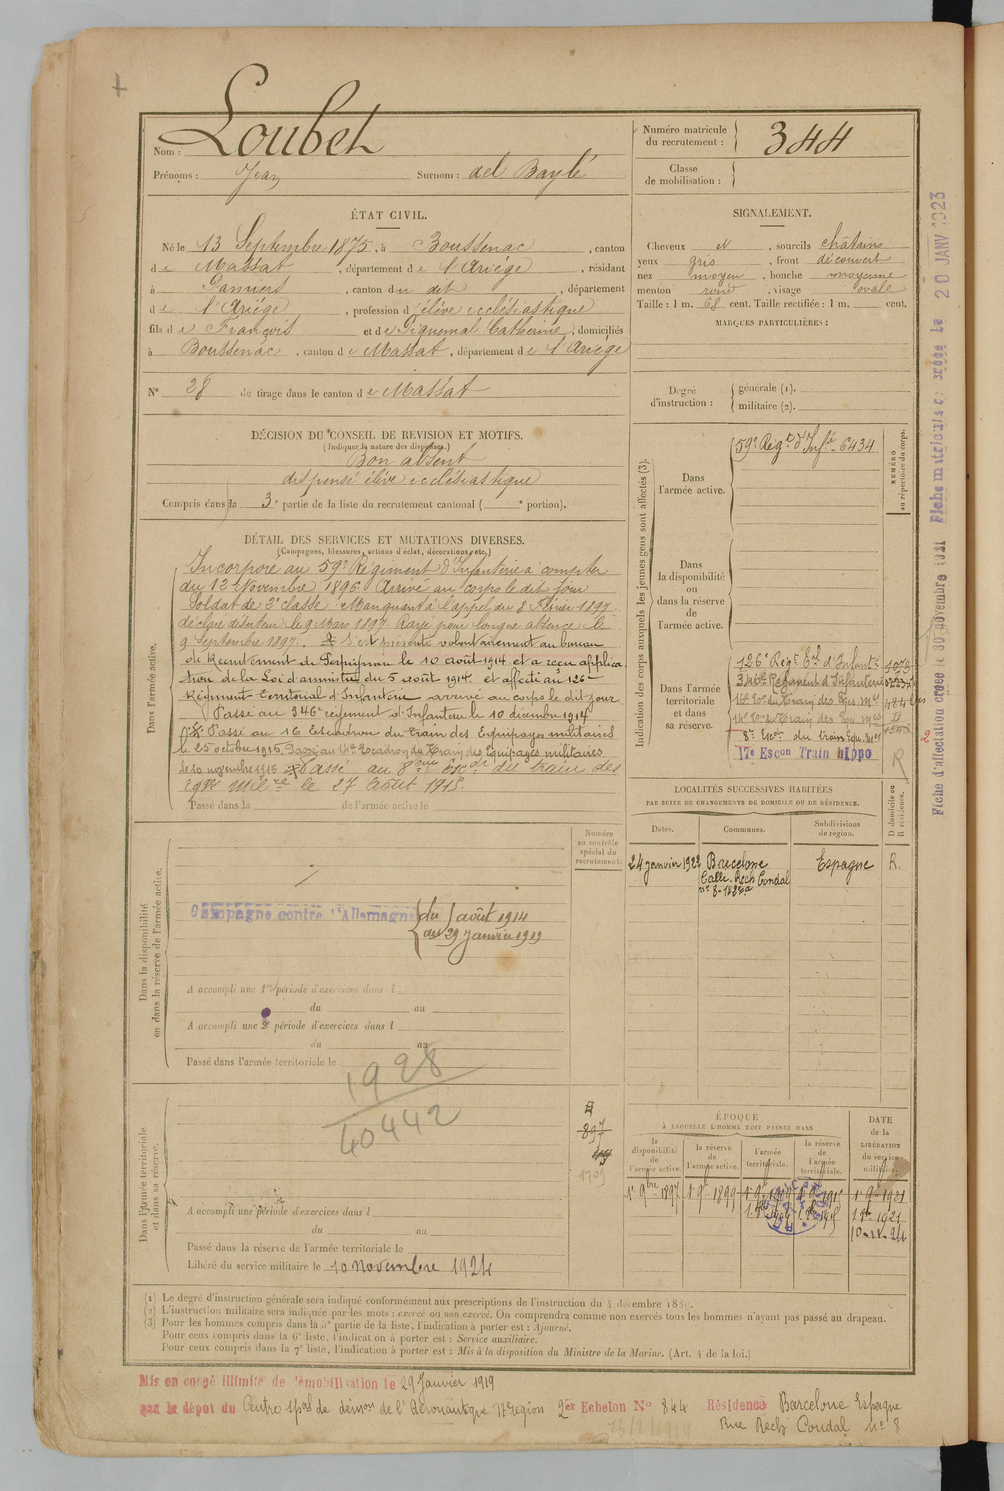 Nom : Loubet
Prénoms : Jean Surnom : del Baylé
Numéro matricule
du recrutement : 344
Classe
de mobilisation :
ÉTAT CIVIL.
Né le 13 Septembre 1875, à Boussenac, canton
de Massat, département de l'Ariége, résidant
à Pamiers, canton du dit, département
de l'Ariége, profession d'élève ecclésiastique
fils de François et de Piquemal Catherine, domiciliés
à Boussenac, canton de Massat, département de l'Ariége
N° 28 de tirage dans le canton de Massat
SIGNALEMENT.
Cheveux et, sourcils châtains
yeux gris, front découvert
nez moyen, bouche moyenne
menton rond, visage ovale
Taille : 1 m. 68 cent. Taille rectifiée : 1 m. cent.
MARQUES PARTICULIÈRES :
Degré
d'instruction : générale (1).
militaire (2).
DÉCISION DU CONSEIL DE REVISION ET MOTIFS.
(Indiquer la nature des dispenses.)
Bon absent
dispensé élève ecclésiastique
Compris dans la 3e partie de la liste du recrutement cantonal ( e portion).
DÉTAIL DES SERVICES ET MUTATIONS DIVERSES.
(Campagnes, blessures, actions d'éclat, décorations, etc.)
Dans l'armée active.
Incorporé au 59e Régiment d'Infanterie à compter
du 12 Novembre 1896. Arrivé au corps le dit jour
Soldat de 2e classe. Manquant à l'appel du 8 Février 1897.
déclaré déserteur le 9 Mars 1897. Rayé pour longue absence le
9 Septembre 1897. S'est présenté volontairement au bureau
de Recrutement de Perpignan le 10 août 1914 et a reçu applica
tion de la Loi d'amnistie du 5 août 1914. et affecté au 126e
Régiment Territorial d'Infanterie arrivé au corps le dit jour.
Passé au 346e régiment d'Infanterie le 10 décembre 1914
Passé au 16 Escadron du Train des Equipages militaires
le 25 octobre 1915. Passé au 14e Escadron du Train des Equipages militaires
le 10 novembre 1916 Passé au 8ème Escon du train des
Eqges Milres le 27 Août 1918.
Passé dans la de l'armée active le
Indication des corps auxquels les jeunes gens sont affectés (3).
NUMÉRO
au répertoire du corps.
Dans
l'armée active.
59e Régt d'Infie 6434
Dans
la disponibilité
ou
dans la réserve
de
l'armée active.
Dans l'armée
territoriale
et dans
sa réserve.
126e Régt Eal d'Infante
346e Régiment d'Infanterie
16e Eon du Train des Equ. Mes
14e Eon du Train des Equ. Mes
8e Escon du train Equ. Mes
17e Escon Train hippo R
LOCALITÉS SUCCESSIVES HABITÉES
PAR SUITE DE CHANGEMENTS DE DOMICILE OU DE RÉSIDENCE.
Dates. Communes. Subdivisions
de région. D domicile ou
R résidence.
24 janvier 1922 Barcelone Espagne R.
Calle Rech Condal
n° 8
Numéro
au contrôle
spécial du
recrutement.
Dans la disponibilité
ou dans la réserve de l'armée active.
Campagne contre l'Allemagne du août 1914
au 29 janvier 1919
A accompli une 1re période d'exercices dans l
du au
A accompli une 2e période d'exercices dans l
du au
Passé dans l'armée territoriale le
1928
40442
Dans l'armée territoriale
et dans sa réserve.
897
A accompli une période d'exercices dans l
du au
Passé dans la réserve de l'armée territoriale le
Libéré du service militaire le 10 novembre 1924
ÉPOQUE
À LAQUELLE L'HOMME DOIT PASSER DANS
la
disponibilité
de
l'armée active.
la réserve
de
l'armée active.
l'armée
territoriale.
la réserve
de
l'armée
territoriale.
DATE
de la
LIBÉRATION
du service
militaire.
1er 9bre 1897 1er 9bre 1899 1er 9bre 1921
1er 8bre 1921
10-11-24
(1) Le degré d'instruction générale sera indiqué conformément aux prescriptions de l'instruction du 4 décembre 1889.
(2) L'instruction militaire sera indiquée par les mots : exercé ou non exercé. On comprendra comme non exercés tous les hommes n'ayant pas passé au drapeau.
(3) Pour les hommes compris dans la 5e partie de la liste, l'indication à porter est : Ajourné.
Pour ceux compris dans la 6e liste, l'indication à porter est : Service auxiliaire.
Pour ceux compris dans la 7e liste, l'indication à porter est : Mis à la disposition du Ministre de la Marine. (Art. 4 de la loi.)
Mis en congé illimité de démobilisation le 29 Janvier 1919
par le dépôt du Centre spal de démon de l'Aéronautique 17e région 2er Echelon N° 844 Résidence Barcelone Espagne
Rue Rech Condal n° 8
Fiche d'affectation créée le 30 novembre 1921 Fiche matriculaire créée le 20 JANV 1923